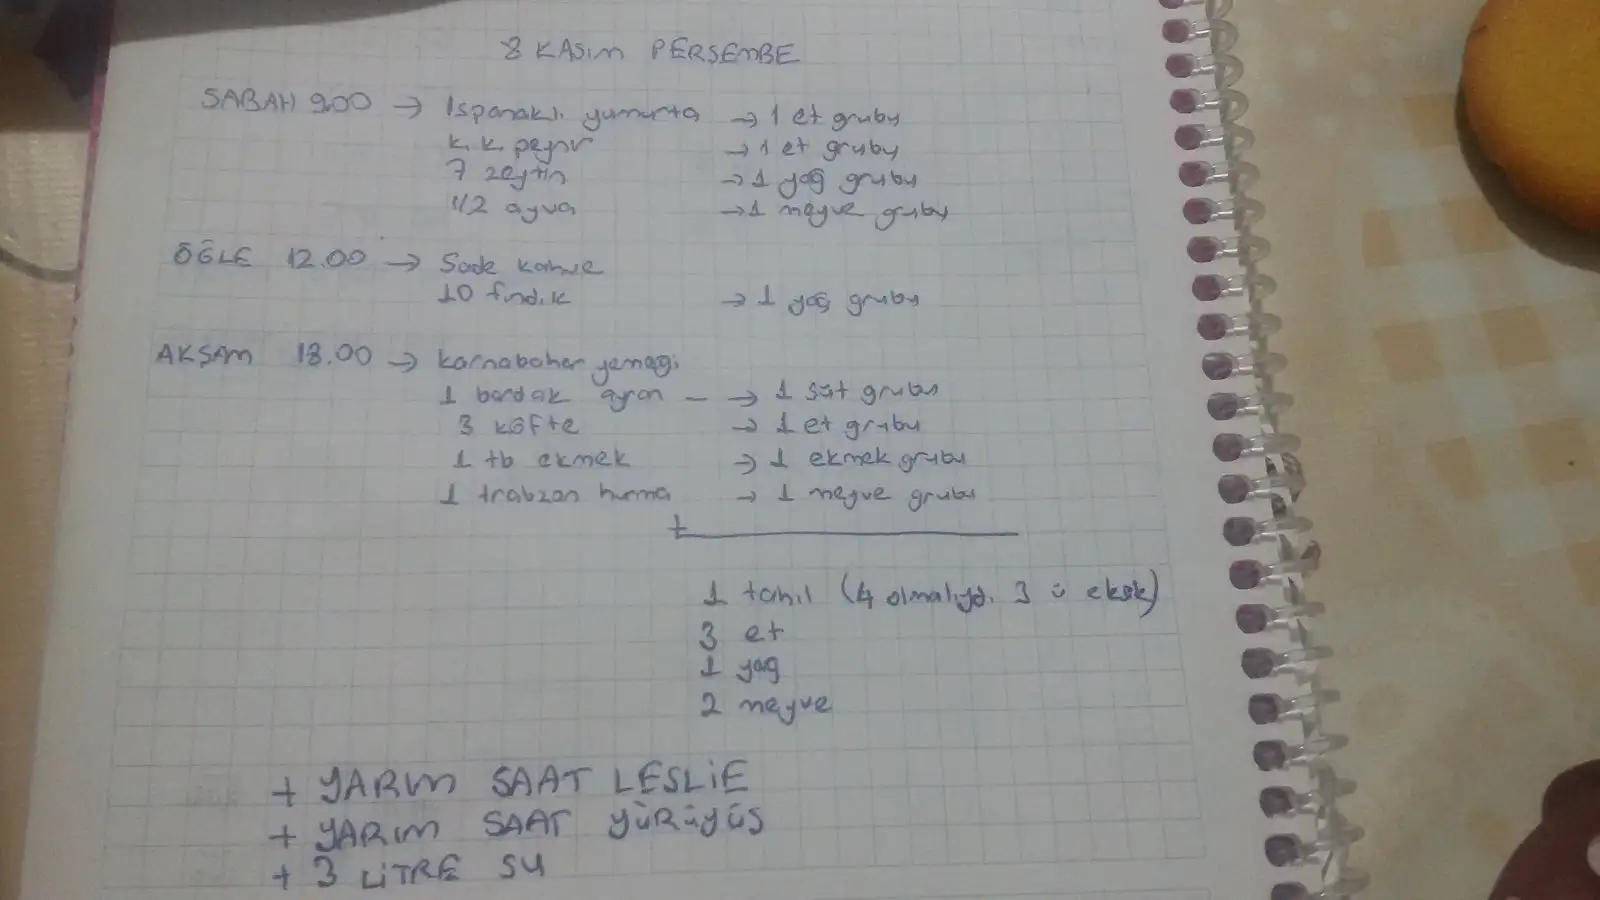 8 KASIM PERŞEMBE
SABAH 9.00 → Ispanaklı yumurta → 1 et grubu
k. k. peynir → 1 et grubu
7 zeytin → 1 yağ grubu
1/2 ayva → 1 meyve grubu
ÖĞLE 12.00 → Sade kahve
10 fındık → 1 yağ grubu
AKŞAM 18.00 → karnabahar yemeği
1 bardak ayran - → 1 süt grubu
3 köfte → 1 et grubu
1 tb ekmek → 1 ekmek grubu
1 trabzan hurma → 1 meyve grubu
+
1 tahıl (4 olmalıydı 3 ü eksik)
3 et
1 yağ
2 meyve
+ YARIM SAAT LESLİE
+ YARIM SAAT YÜRÜYÜŞ
+ 3 LİTRE SU